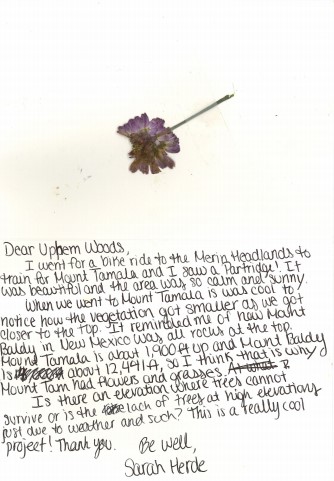 Dear Uphem Woods,
I went for a bike ride to the Merin Headlands to
train for Mount Tamala and I saw a Partridge! It
was beautiful and the area was so calm and sunny.
When we went to Mount Tamala is was cool to
notice how the vegetation got smaller as we got
closer to the top. It reminded me of how Mount
Baldy in New Mexico was all rocks at the top.
Mount Tamala is about 1,900 ft up and Mount Baldy
is about 12,441 ft, so I think that is why
Mount Tam had flowers and grasses.
Is there an elevation where trees cannot
survive or is the lack of trees at high elevations
just due to weather and such? This is a really cool
project! Thank you. Be well,
Sarah Herde